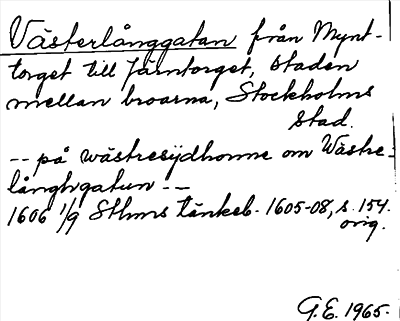 Västerlånggatan från Mynt-
torget till Järntorget, staden
mellan broarna, Stockholms
stad.
-- på wästresijdhonne om Wästre-
långhgatun --
1606 1/9 Sthms tänkeb. 1605-08, s. 154.
orig.
G.E. 1965.